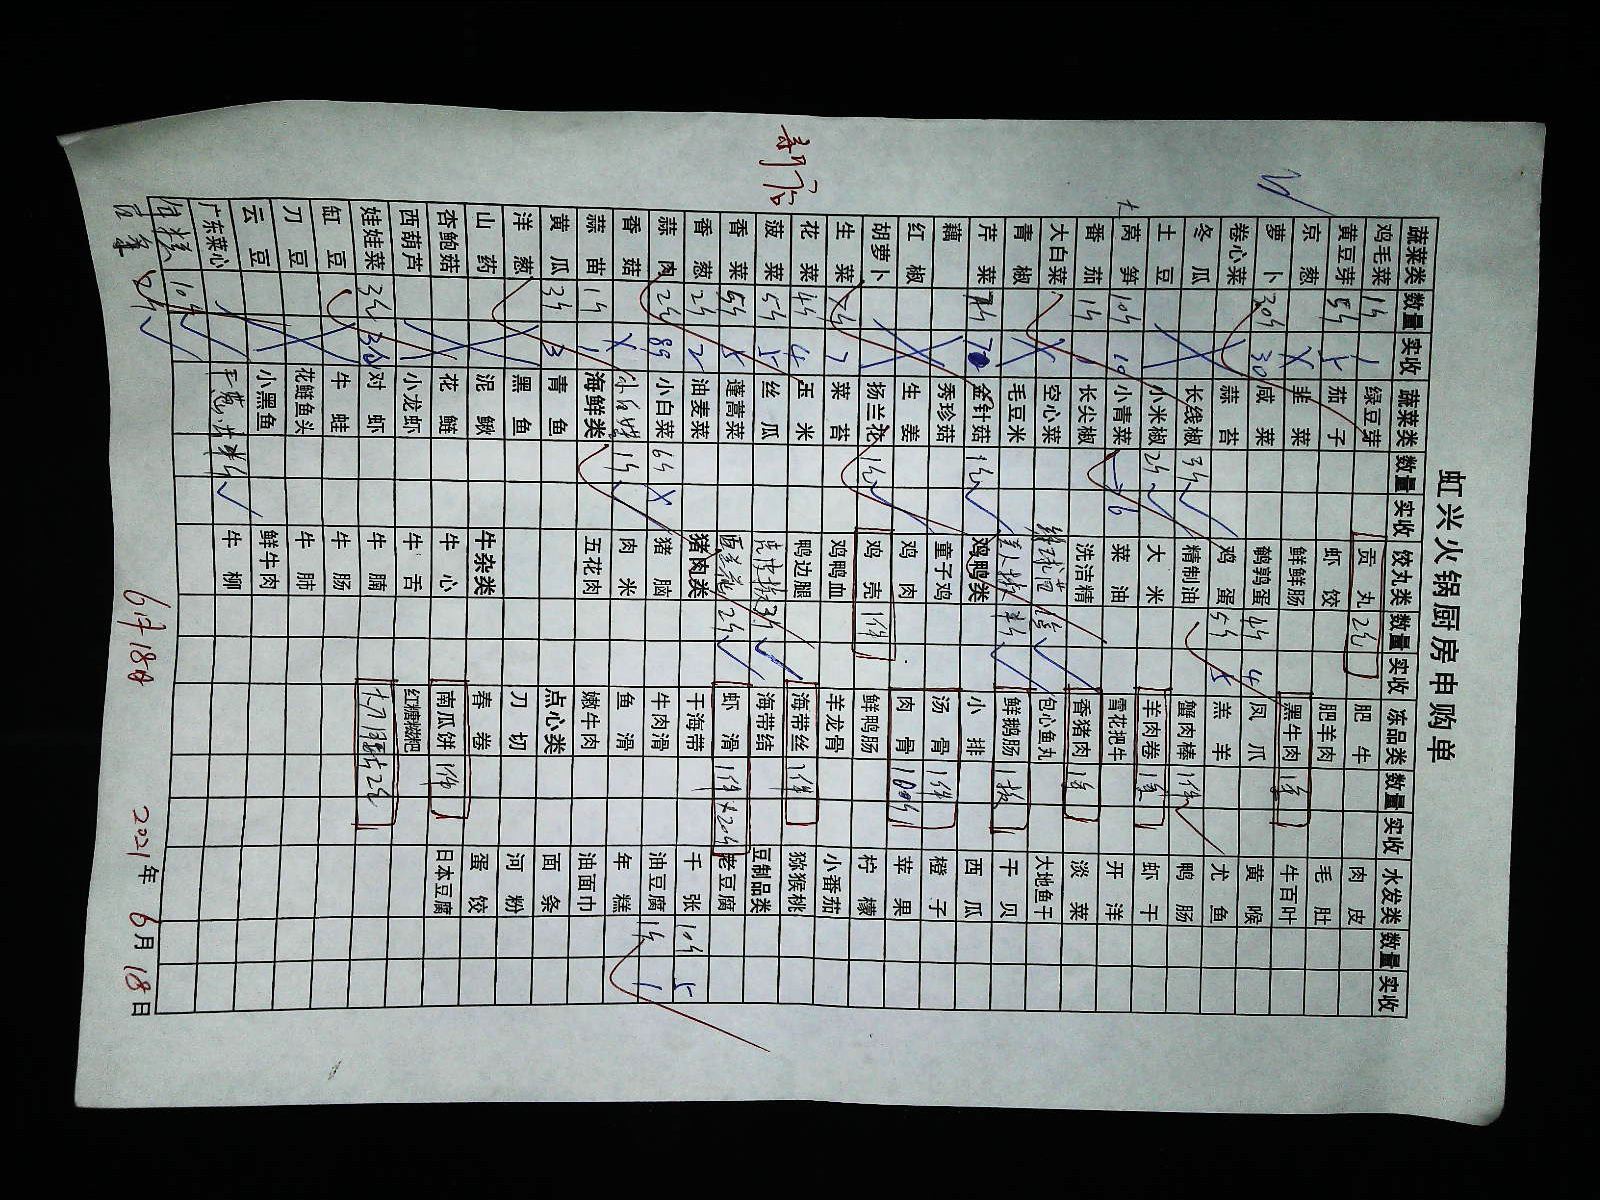 虹兴火锅厨房申购单
蔬菜类 数量 实收 蔬菜类 数量 实收 饺丸类 数量 实收 冻品类 数量 实收 水发类 数量 实收
鸡毛菜 1斤 1 绿豆芽 贡丸 2包 肥牛 肉皮
黄豆芽 5斤 5 茄子 虾饺 肥羊肉 毛肚
京葱 韭菜 鲜鲜肠 黑牛肉 1箱 牛百叶
萝卜 30斤 30 咸菜 鹌鹑蛋 4斤 4 凤爪 黄喉
卷心菜 蒜苔 鸡蛋 5斤 5 羔羊 尤鱼
冬瓜 长线椒 3斤 精制油 蟹肉棒 1件 鸭肠
土豆 小米椒 2斤 大米 羊肉卷 1箱 虾干
莴笋 10斤 10 小青菜 6 菜油 雪花把牛 开洋
番茄 1斤 长尖椒 洗洁精 香猪肉 1箱 淡菜
大白菜 空心菜 包心鱼丸 大地鱼干
青椒 毛豆米 鲜鹅肠 1板 干贝
芹菜 7斤 金针菇 1包 鸡鸭类 小排 西瓜
藕 秀珍菇 童子鸡 汤骨 1件 橙子
红椒 生姜 鸡肉 肉骨 100斤 苹果
胡萝卜 扬兰花 1包 鸡壳 1件 鲜鸭肠 柠檬
生菜 7斤 7 菜苔 鸡鸭血 羊龙骨 小番茄
花菜 4斤 4 玉米 鸭边腿 海带丝 1件 猕猴桃
菠菜 5斤 5 丝瓜 3斤 海带结 豆制品类
香菜 5斤 5 蓬蒿菜 西兰花 2斤 虾滑 1件 20斤 老豆腐
香葱 2斤 2 油麦菜 猪肉类 干海带 千张 10斤 5
蒜肉 2斤 小白菜 6斤 猪脑 牛肉滑 油豆腐 1斤 1
香菇 1斤 肉米 鱼滑 年糕
蒜苗 1斤 1 海鲜类 五花肉 嫩牛肉 油面巾
黄瓜 3斤 3 青鱼 点心类 面条
洋葱 黑鱼 刀切 河粉
山药 泥鳅 牛杂类 春卷 蛋饺
杏鲍菇 花鲢 牛心 南瓜饼 1件 日本豆腐
西葫芦 小龙虾 牛舌 红糖糍粑
娃娃菜 3斤 对虾 牛腩 2包
缸豆 牛蛙 牛肠
刀豆 花鲢鱼头 牛肺
云豆 小黑鱼 鲜牛肉
广东菜心 牛柳
年糕 10斤
6月18日 2021年 6月 18日